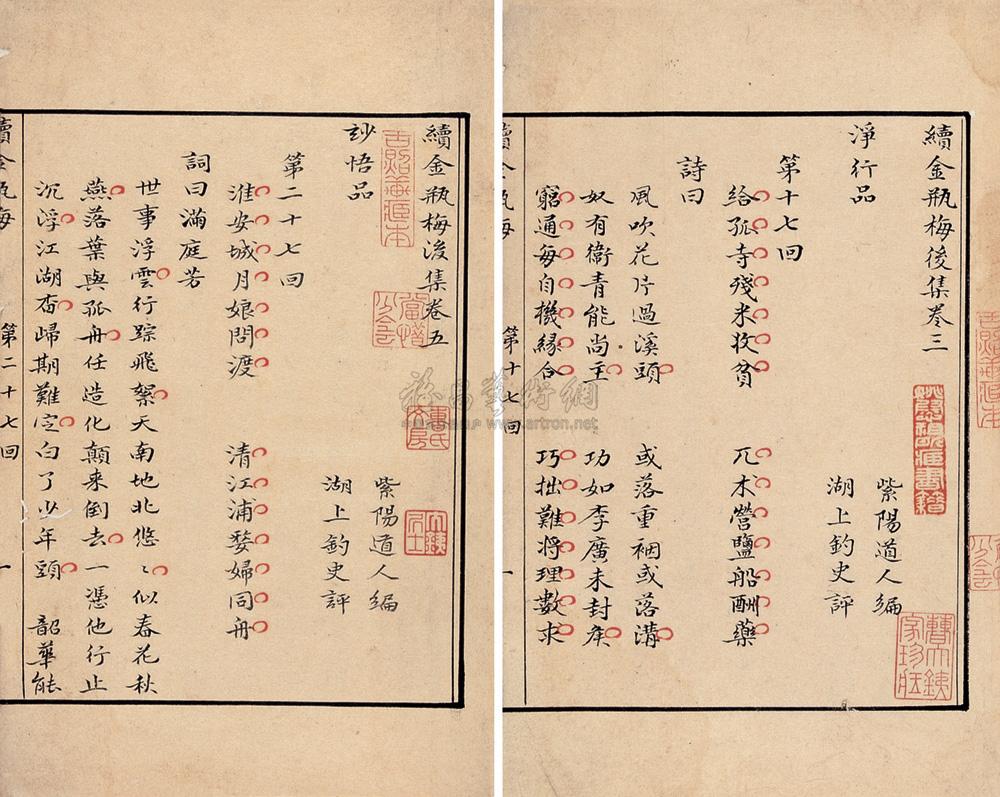 續金瓶梅後集卷三
紫陽道人編
湖上釣史評
淨行品
第十七回
給孤寺殘米收貧 兀朮營鹽船酬藥
詩曰
風吹花片過溪頭 或落重裀或落溝
奴有衞青能尚主 功如李廣未封侯
窮通每自機緣合 巧拙難將理數求
續金瓶梅 第十七回 一
續金瓶梅後集卷五
紫陽道人編
湖上釣史評
玅悟品
第二十七回
淮安城月娘問渡 清江浦婺婦同舟
詞曰滿庭芳
世事浮雲行踪飛絮天南地北悠〻似春花秋
燕落葉與孤舟任造化顛來倒去一憑他行止
沉浮江湖杳歸期難定白了少年頭 韶華能
續金瓶梅 第二十七回 一
www.artron.net